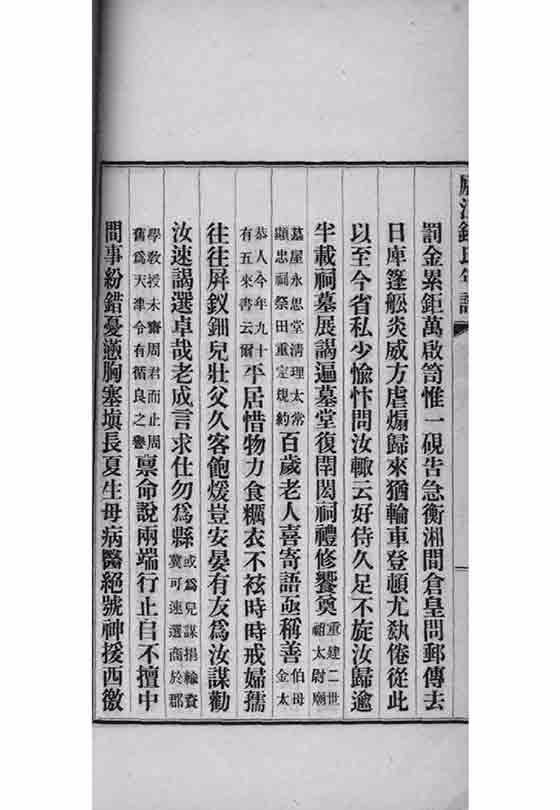 廬江錢氏年譜
罰金累鉅萬啟笥惟一硯告急衡湘間倉皇問郵傳去
日庳篷舩炎威方虐煽歸來猶輪車登頓尤勌倦從此
以至今省私少愉忭問汝輙云好侍久足不旋汝歸逾
半載祠墓展謁遍墓堂復閈閎祠禮修饗奠重建二世祖太尉廟
墓屋永思堂清理太常顯忠祠祭田重定規約百歲老人喜寄語亟稱善伯母金太
恭人今年九十有五來書云爾平居惜物力食糲衣不袨時時戒婦孺
往往屏釵鈿兒壯父久客飽煖豈安晏有友爲汝謀勸
汝速謁選卓哉老成言求仕勿爲縣或爲兒謀捐輸資冀可速選商於郡
學教授未齋周君而止周舊爲天津令有循良之譽稟命說兩端行止自不擅中
間事紛錯憂懣胸塞塡長夏生母病醫絕號神援西徼